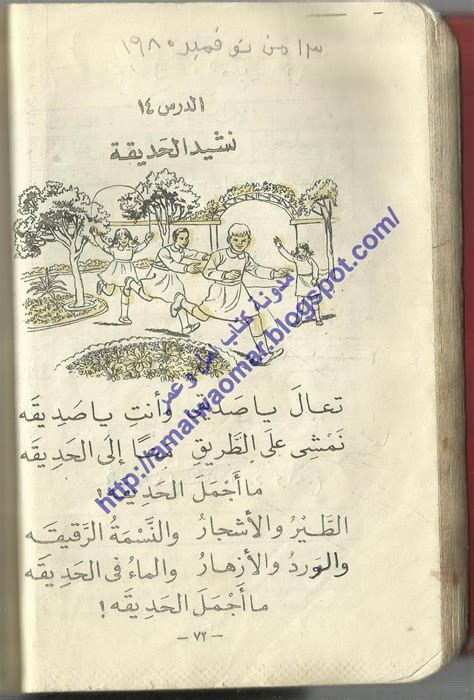 ١٣ من نوفمبر ١٩٨٥
الدرس ١٤
نشيد الحديقة
تعالَ يا صديقي وأنتِ يا صديقَه
نمشى على الطَّريقِ معًا إلى الحديقَه
ما أجملَ الحديقَه!
الطَّيْرُ والأشجارُ والنَّسْمةُ الرَّقيقَه
والوردُ والأزهارُ والماءُ فى الحديقَه
ما أجملَ الحديقَه!
- ٧٢ -
مدونة كتاب أمل وعمر
http://amalwaomar.blogspot.com/